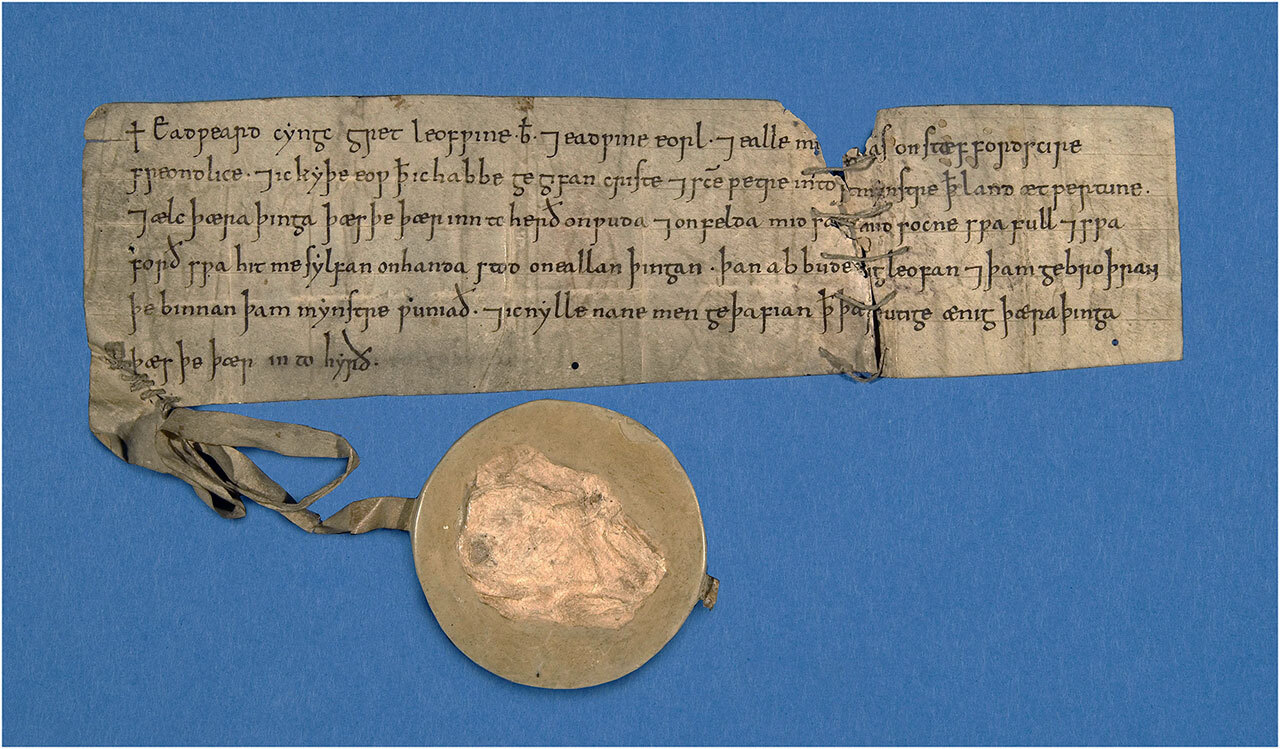 ✝ Eadƿeard cyngc gret leofƿine · b̄ · ⁊ eadƿine eorl · ⁊ ealle on stæffordscire
freondlice · ⁊ ic kyþe eoƿ ꝥ ic habbe gegyfan criste ⁊ sc̄e petre into minstre ꝥ land æt pertune .
⁊ ælc þæra þinga þæs þe þær inn to herð on ƿuda ⁊ on felda mid and socne sƿa full ⁊ sƿa
forð sƿa hit me sylfan on handa stod on eallan þingan · þan abbude leofan ⁊ þam gebroþran
þe binnan þam mynstre ƿuniað · ⁊ ic nylle nane men geþafian ꝥ utige ænig þæra þinga
þæs þe þær in to hyrð .